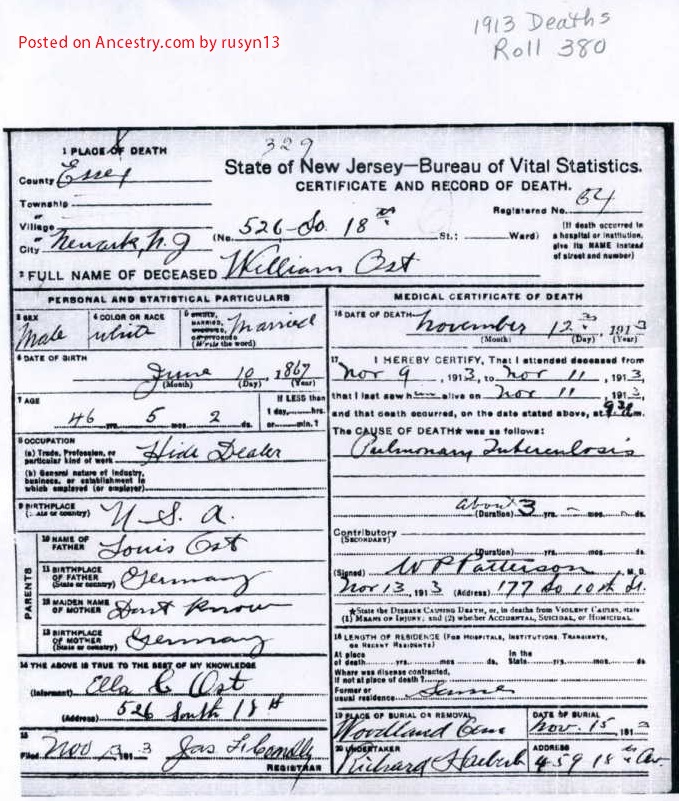 1913 Deaths
Roll 380
Posted on Ancestry.com by rusyn13
329
1 PLACE OF DEATH
County Essex
State of New Jersey—Bureau of Vital Statistics.
CERTIFICATE AND RECORD OF DEATH.
Township
or
Village
or
City Newark, N. J
Registered No. 84
(No. 526 So. 18th St.; Ward)
(If death occurred in a hospital or institution, give its NAME instead of street and number)
2 FULL NAME OF DECEASED William Ost
PERSONAL AND STATISTICAL PARTICULARS
3 SEX
Male
4 COLOR OR RACE
white
5 SINGLE, MARRIED, WIDOWED, OR DIVORCED (Write the word)
Married
6 DATE OF BIRTH
June 10, 1867
(Month) (Day) (Year)
7 AGE
46 yrs. 5 mos. 2 ds.
If LESS than 1 day,....hrs. or.....min.?
8 OCCUPATION
(a) Trade, Profession, or particular kind of work Hide Dealer
(b) General nature of industry, business, or establishment in which employed (or employer)
9 BIRTHPLACE
(State or country) U. S. A.
PARENTS
10 NAME OF FATHER Louis Ost
11 BIRTHPLACE OF FATHER (State or country) Germany
12 MAIDEN NAME OF MOTHER Dont Know
13 BIRTHPLACE OF MOTHER (State or country) Germany
14 THE ABOVE IS TRUE TO THE BEST OF MY KNOWLEDGE
(Informant) Ella C Ost
(Address) 526 South 18 st
15
Filed Nov 1913 Jas
REGISTRAR
MEDICAL CERTIFICATE OF DEATH
16 DATE OF DEATH
November 12, 1913
(Month) (Day) (Year)
17 I HEREBY CERTIFY, That I attended deceased from
Nov 9, 1913, to Nov 11, 1913,
that I last saw him alive on Nov 11, 1913,
and that death occurred, on the date stated above, at m.
The CAUSE OF DEATH★ was as follows:
Pulmonary Tuberculosis
about 3
(Duration) yrs. mos. ds.
Contributory
(SECONDARY)
(Duration) yrs. mos. ds.
(Signed) W P Patterson, M. D.
Nov 13, 1913 (Address) 177 So 10th St.
★State the DISEASE CAUSING DEATH, or, in deaths from VIOLENT CAUSES, state
(1) MEANS OF INJURY; and (2) whether ACCIDENTAL, SUICIDAL, or HOMICIDAL.
18 LENGTH OF RESIDENCE (FOR HOSPITALS, INSTITUTIONS, TRANSIENTS, OR RECENT RESIDENTS)
At place of death yrs. mos. ds. In the State yrs. mos. ds.
Where was disease contracted, if not at place of death?
Former or usual residence Same
19 PLACE OF BURIAL OR REMOVAL
Woodland Cem
DATE OF BURIAL
Nov. 15, 1913
20 UNDERTAKER
Richard
ADDRESS
459 18th Av.